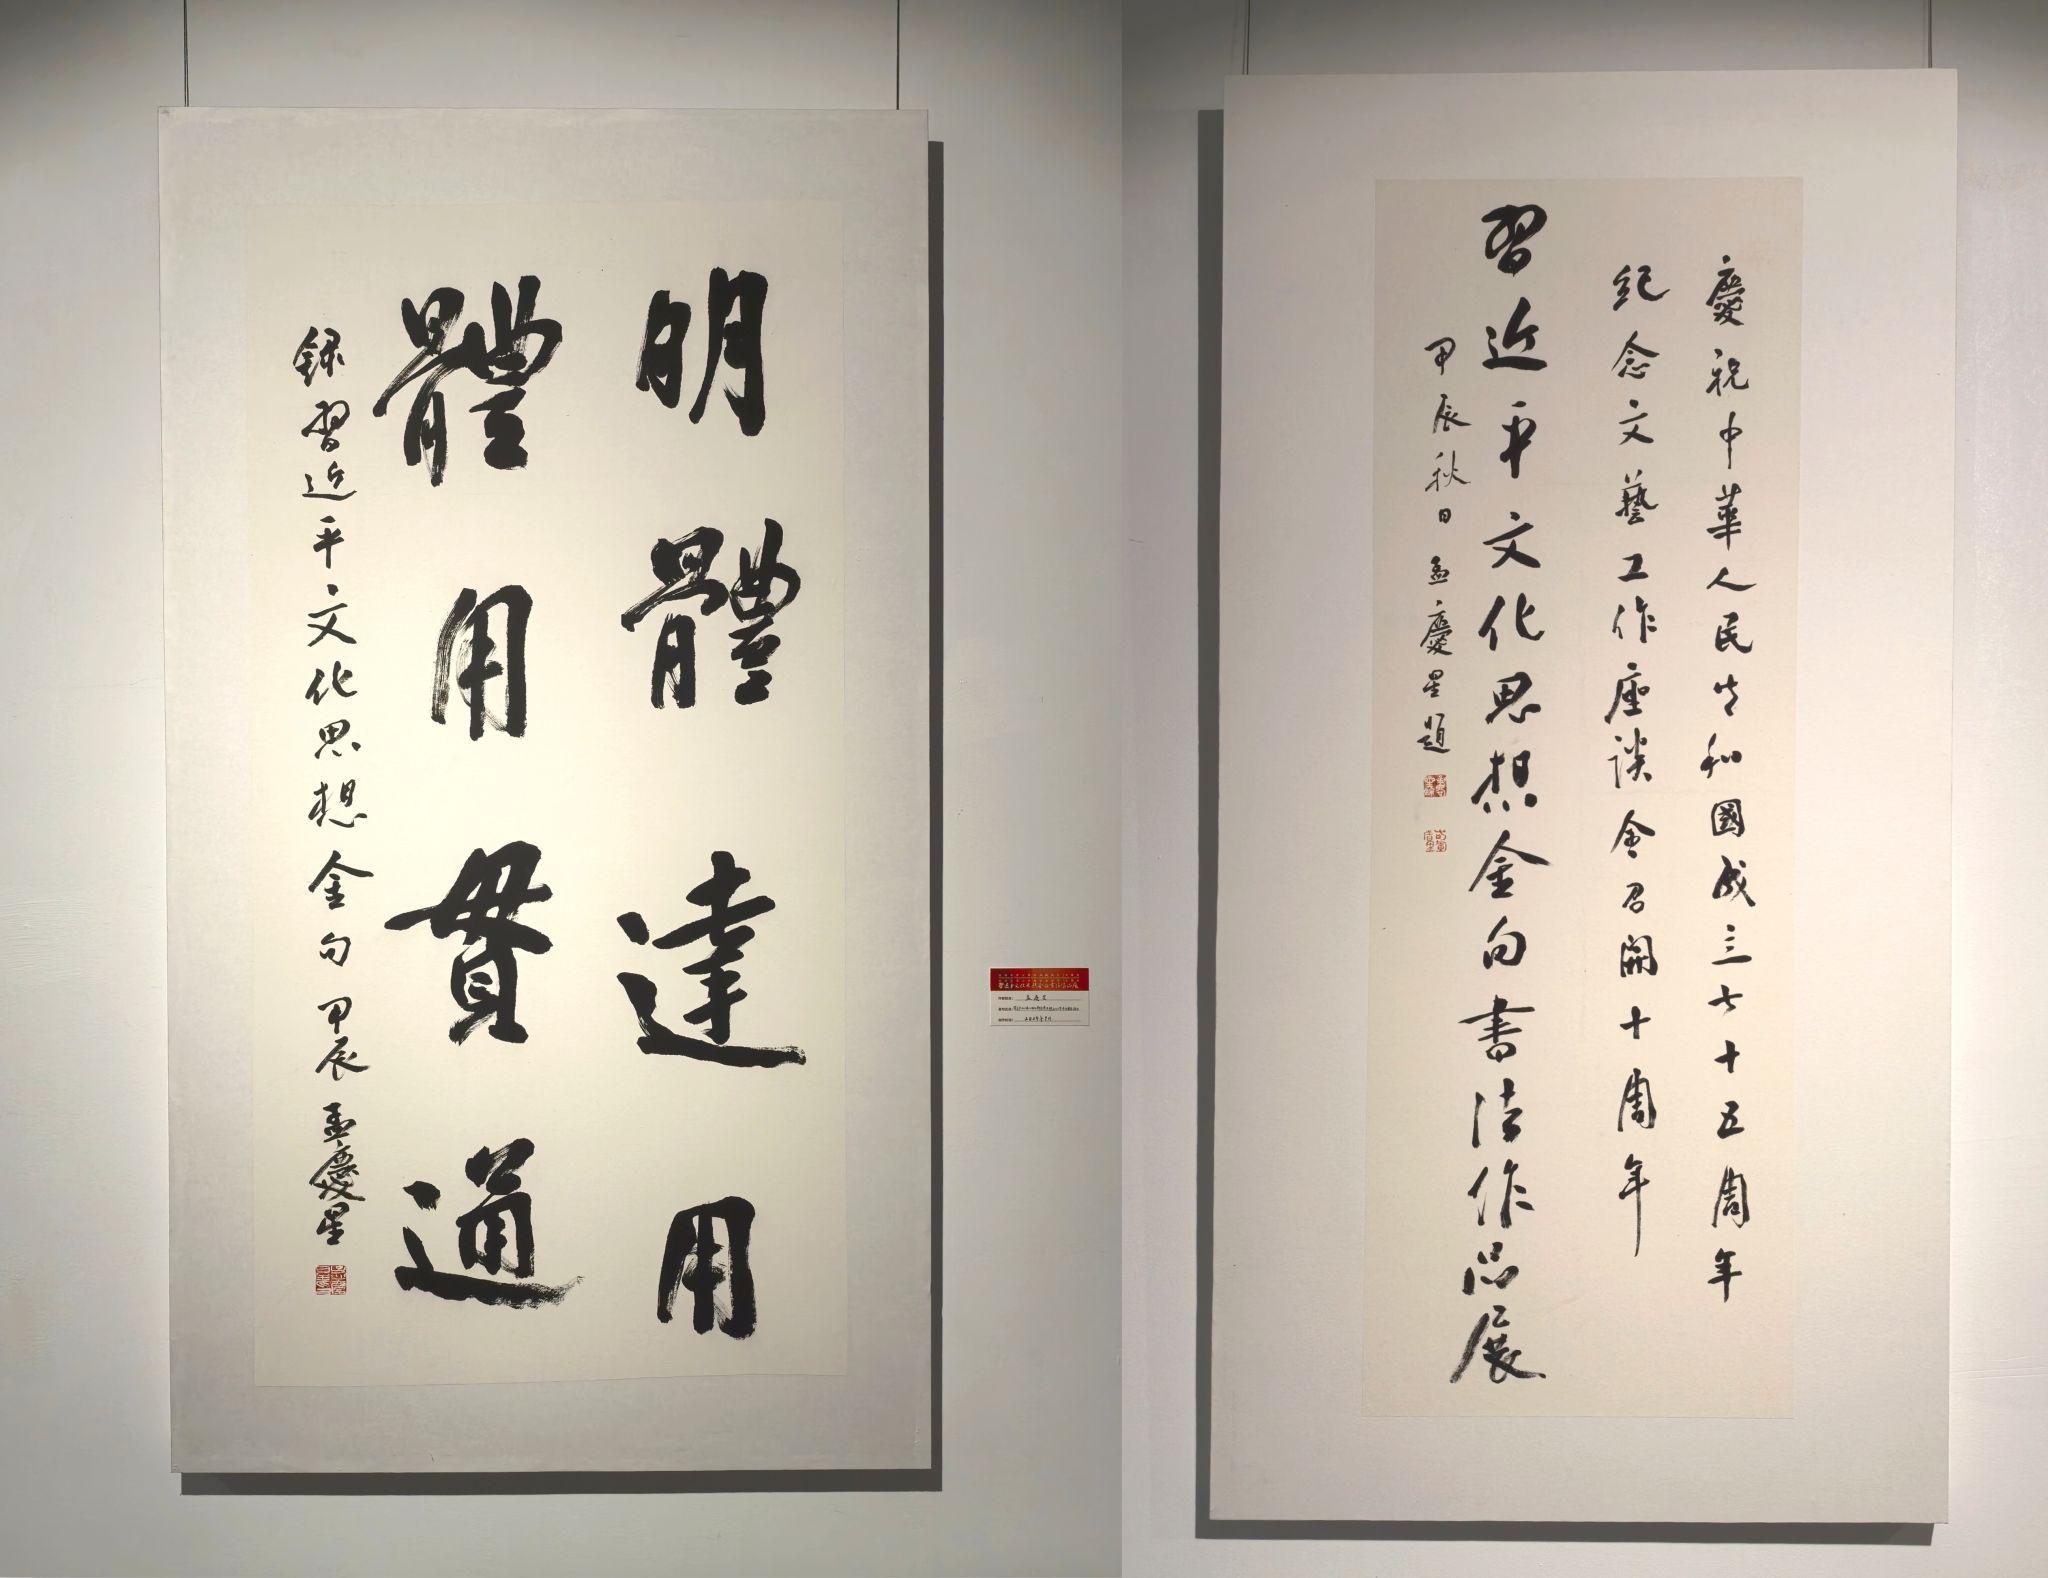 明體達用
體用貫通
録習近平文化思想金句 甲辰 孟慶星
慶祝中華人民共和國成立七十五周年
紀念文藝工作座談會召開十周年
習近平文化思想金句書法作品展
甲辰秋日 孟慶星題